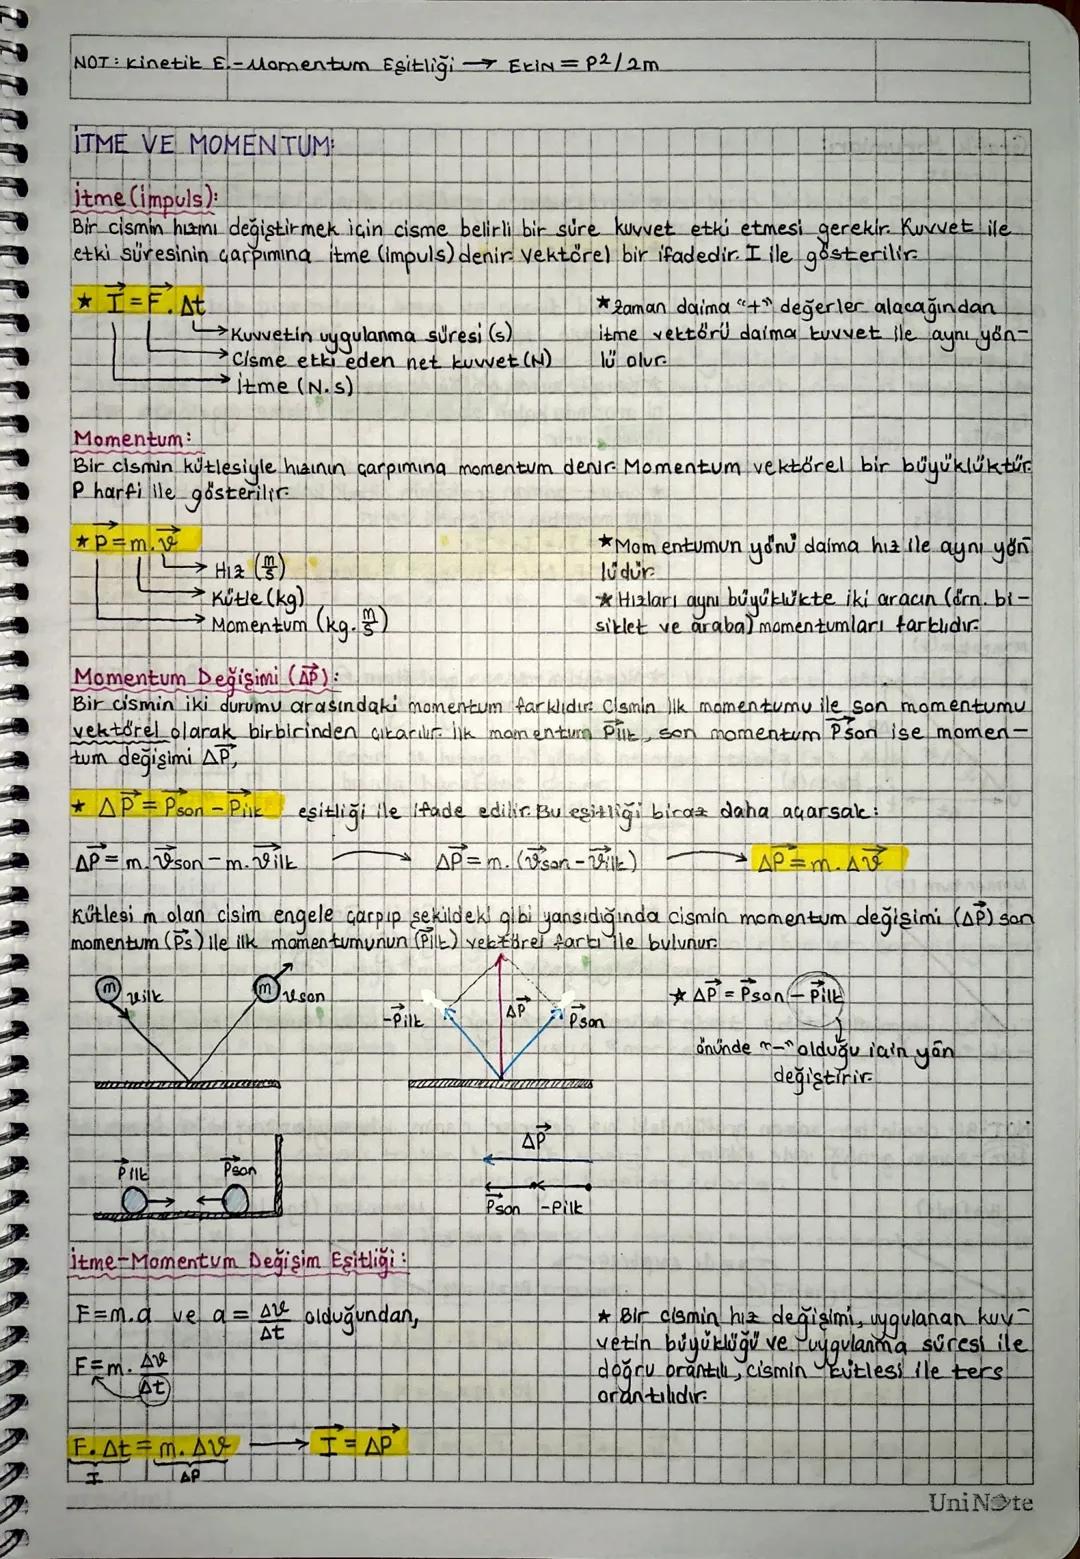 NOT: Kinetik E.-Momentum Eşitliği → EKİN = P²/2m
İTME VE MOMENTUM:
İtme (İmpuls):
Bir cismin hızını değiştirmek için cisme belirli bir süre kuvvet etki etmesi gerekir. Kuvvet ile
etki süresinin çarpımına itme (impuls) denir. Vektörel bir ifadedir. I ile gösterilir.
★ I⃗ = F⃗. Δt
→ Kuvvetin uygulanma süresi (s)
→ Cisme etki eden net kuvvet (N)
→ İtme (N.s)
★ Zaman daima "+" değerler alacağından
itme vektörü daima kuvvet ile aynı yön-
lü olur.
Momentum:
Bir cismin kütlesiyle hızının çarpımına momentum denir. Momentum vektörel bir büyüklüktür.
P harfi ile gösterilir.
★ P⃗ = m.v⃗
→ Hız (m/s)
→ Kütle (kg)
→ Momentum (kg.m/s)
★ Momentumun yönü daima hız ile aynı yön
lüdür.
★ Hızları aynı büyüklükte iki aracın (örn. bi-
siklet ve araba) momentumları farklıdır.
Momentum Değişimi (ΔP⃗):
Bir cismin iki durumu arasındaki momentum farkıdır. Cismin ilk momentumu ile son momentumu
vektörel olarak birbirinden çıkarılır. İlk momentum P⃗ilk, son momentum P⃗son ise momen-
tum değişimi ΔP⃗,
★ ΔP⃗ = P⃗son - P⃗ilk eşitliği ile ifade edilir. Bu eşitliği biraz daha açarsak:
ΔP⃗ = m.v⃗son - m.v⃗ilk → ΔP⃗ = m.(v⃗son - v⃗ilk) → ΔP⃗ = m.Δv⃗
Kütlesi m olan cisim engele çarpıp şekildeki gibi yansıdığında cismin momentum değişimi (ΔP⃗) son
momentum (P⃗s) ile ilk momentumunun (P⃗ilk) vektörel farkı ile bulunur.
m v⃗ilk
m v⃗son
-P⃗ilk
ΔP⃗
P⃗son
★ ΔP⃗ = P⃗son - P⃗ilk
önünde "-" olduğu için yön
değiştirir.
P⃗ilk
P⃗son
ΔP⃗
P⃗son -Pilk
İtme-Momentum Değişim Eşitliği:
F=m.a ve a = Δv/Δt olduğundan,
F=m. Δv/Δt
F.Δt = m.Δv → I⃗ = ΔP⃗
I ΔP
★ Bir cismin hız değişimi, uygulanan kuv-
vetin büyüklüğü ve uygulanma süresi ile
doğru orantılı, cismin kütlesi ile ters
orantılıdır.
UniNote